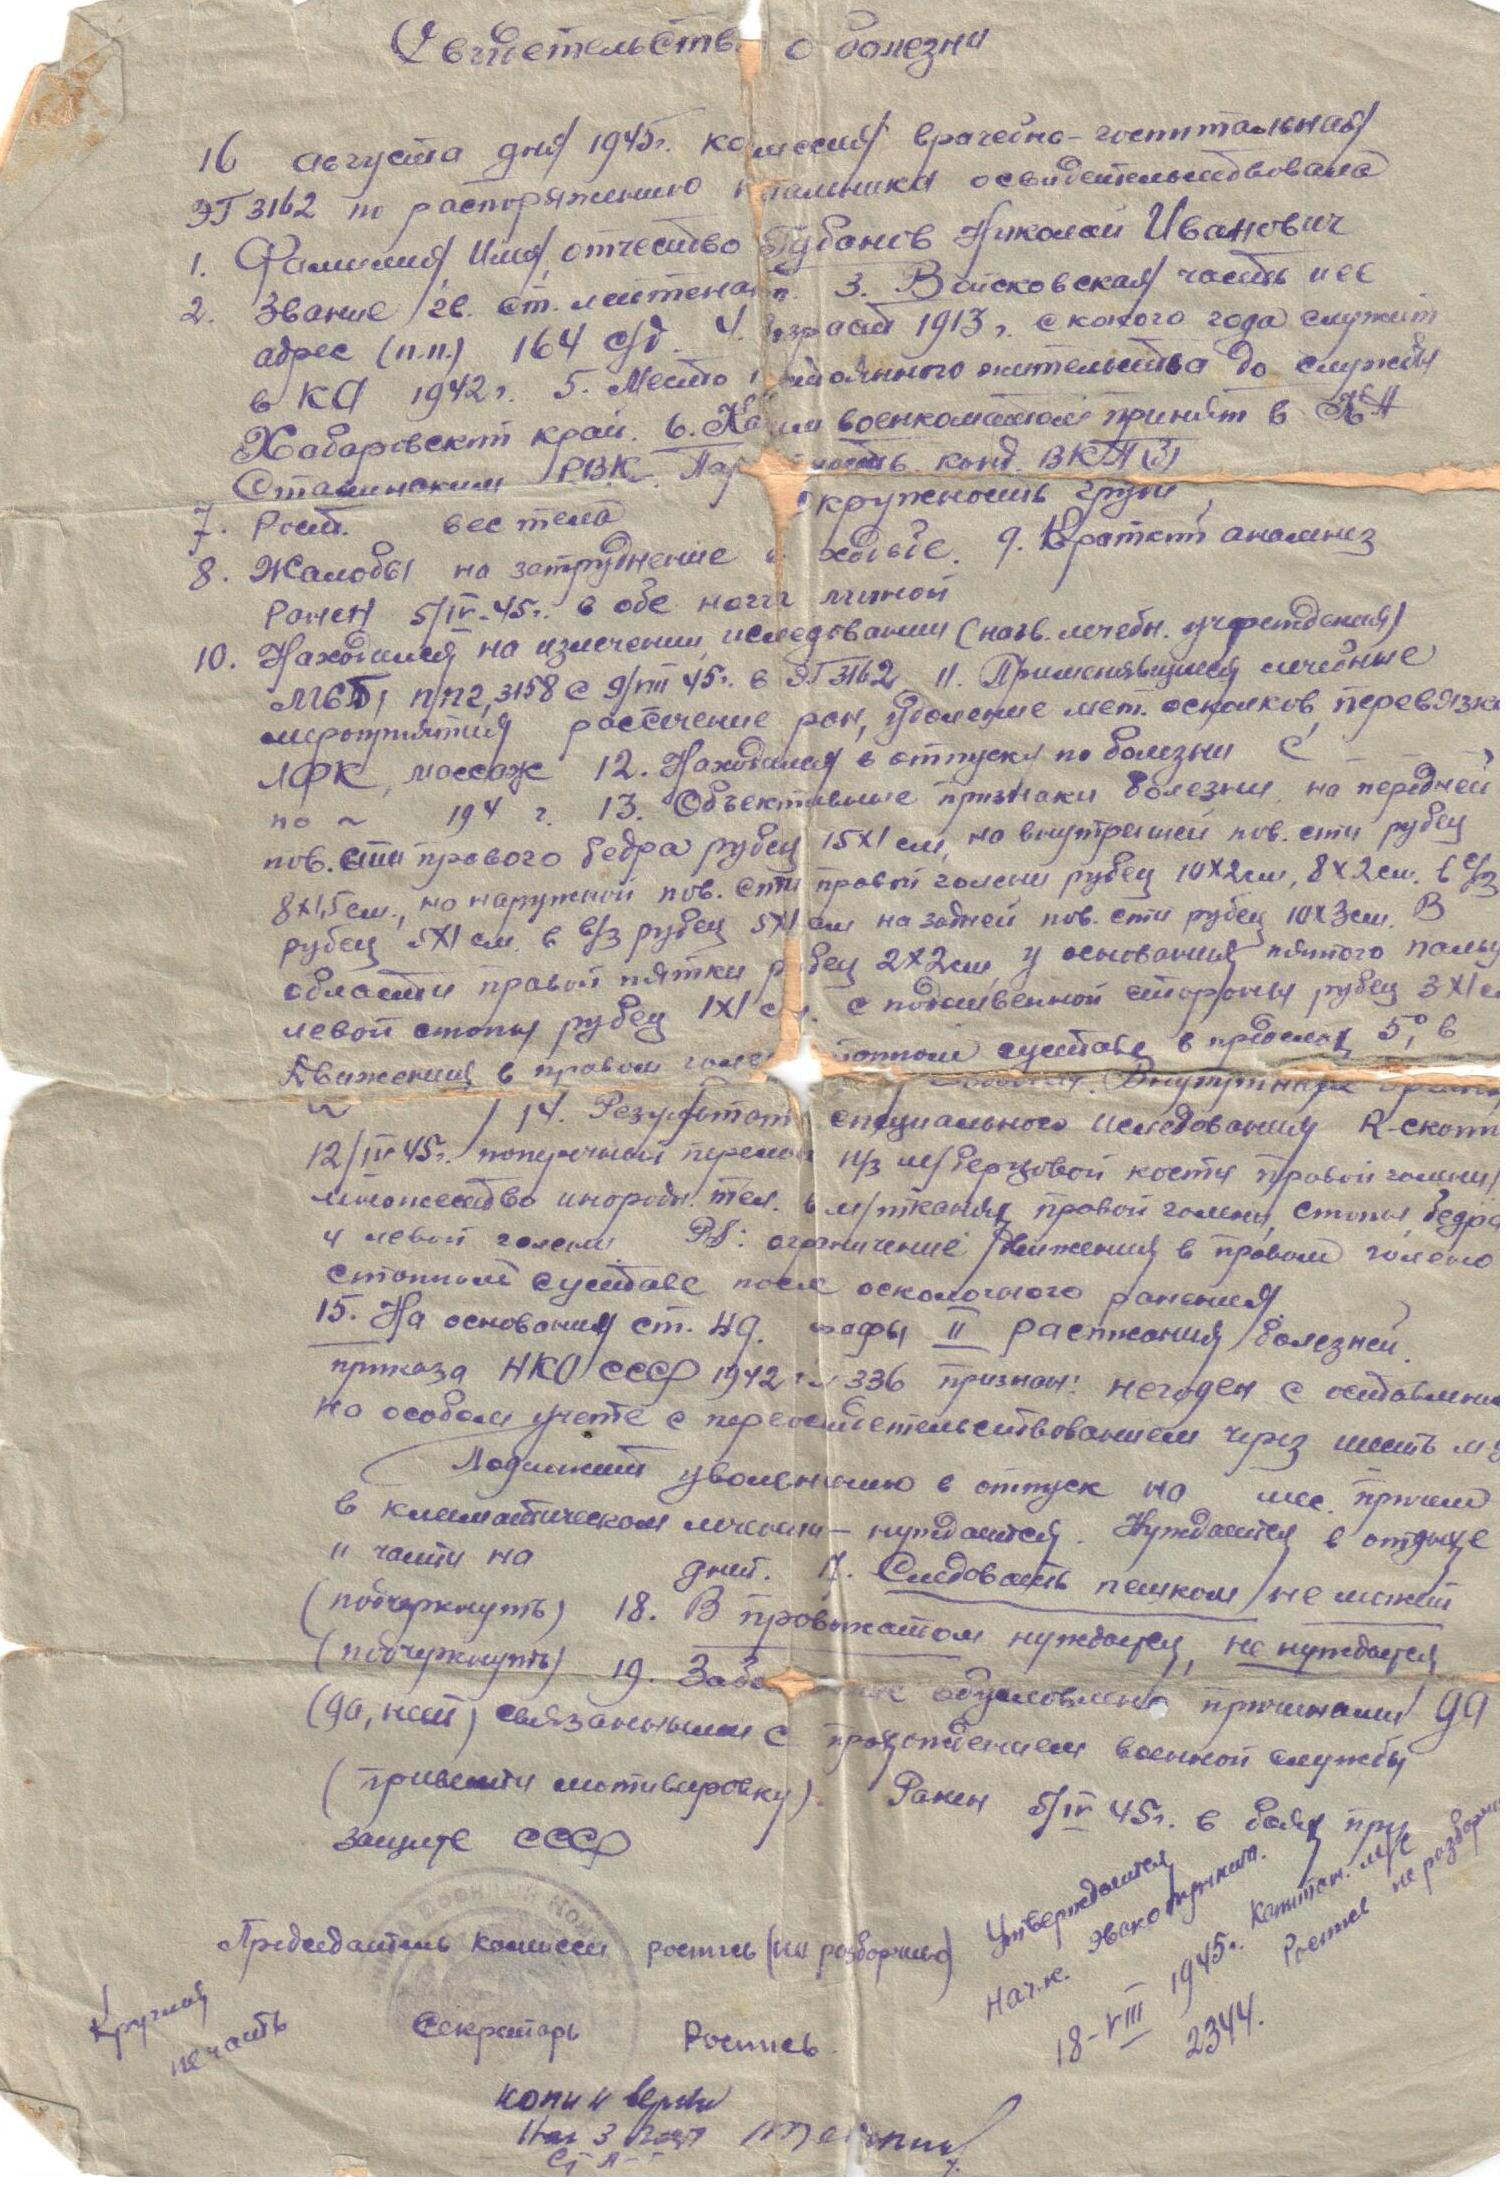 Свидетельство о болезни
16 августа дня 1945г. комиссия врачебно-госпитальная
ЭГ 3162 по распоряжению начальника освидетельствовала
1. Фамилия, Имя, отчество Губанов Николай Иванович
2. Звание гв. ст. лейтенант. 3. Войсковская часть и её
адрес (п.п.) 164 с/д. 4. Возраст 1913г. с какого года служит
в КА 1942г. 5. Место постоянного жительства до службы
Хабаровский край. 6. Каким военкоматом принят в КА
Сталинским РВК. Партийность канд. ВКП(б)
7. Рост. вес тела окружность груди
8. Жалобы на затруднение в ходьбе. 9. Краткий анамнез
Ранен 5/IV-45г. в обе ноги миной
10. Находился на излечении, иследовании (назв. лечебн. учреждения)
МСБ, ппг, 3158 с 9/VIII 45г. в ЭГ 3162 11. Применявшиеся лечебные
мероприятия рассечение ран, удаление мет. осколков, перевязка
ЛФК, массаж 12. Находился в отпуску по болезни С
по ~ 194 г. 13. Объективные признаки болезни на передней
пов. сти правого бедра рубец 15х1 см, на внутренней пов. сти рубец
8х1,5 см., на наружной пов. сти правой голени рубец 10х2см, 8х2см. в с/з
рубец 5х1 см. в в/з рубец 5х1 см на задней пов. сти рубец 10х3см. В
области правой пятки рубец 2х2см, у основания пятого пальца
левой стопы рубец 1х1 см. с подошвенной стороны рубец 3х1 см
Движения в правом голеностопном суставе в пределах 5°, в
~ 14. Результаты специального иследования R-скопия
12/IV 45г. поперечный перелом н/з м/берцовой кости правой голени,
множество инородн. тел. в м/тканях правой голени, стопы, бедра
и левой голени. DS: ограничение движения в правом голено
стопном суставе после осколочного ранения
15. На основания ст. 49. графы II распиания болезней
приказа НКО СССР 1942 г. 336 признан: негоден с оставлением
на особом учете с переосвидетельствованием через шесть м-ц
Подлежит увольнению в отпуск на мес. причем
в климатическом лечении - нуждается. Нуждается в отдыхе
и части на дней. 17. Следовать пешком не может
(подчеркнуть) 18. В провожатом нуждается, не нуждается
(подчеркнуть) 19. Заболевание обусловлено причинами да
(да, нет) связанными с прохождением военной службы
(привести мотивировку) Ранен 5/IV 45г. в боях при
защите СССР
Утверждается
Нач.к. эвакопункта.
18-VIII 1945г. Капитан. м/с
2344. Роспись не разборчи
Председатель комиссии роспись (не разборчиво)
Круглая
печать
Секретарь Роспись
копи и верна